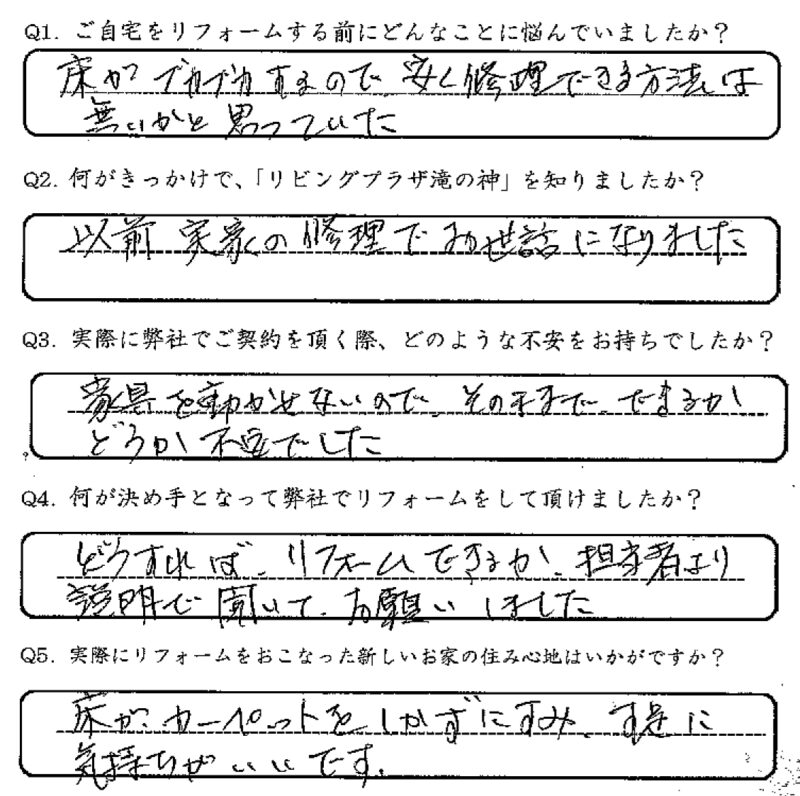 Q1. ご自宅をリフォームする前にどんなことに悩んでいましたか？
床がブカブカするので、安く修理できる方法は
無いかと思っていた
Q2. 何がきっかけで、「リビングプラザ滝の神」を知りましたか？
以前 実家の修理でお世話になりました
Q3. 実際に弊社でご契約を頂く際、どのような不安をお持ちでしたか？
家具を動かせないので、そのままで、できるか
どうか不安でした
Q4. 何が決め手となって弊社でリフォームをして頂けましたか？
どうすれば、リフォームできるか、担当者より
説明で聞いて、お願いしました
Q5. 実際にリフォームをおこなった新しいお家の住み心地はいかがですか？
床が、カーペットをしかずにすみ、
気持ちがいいです.